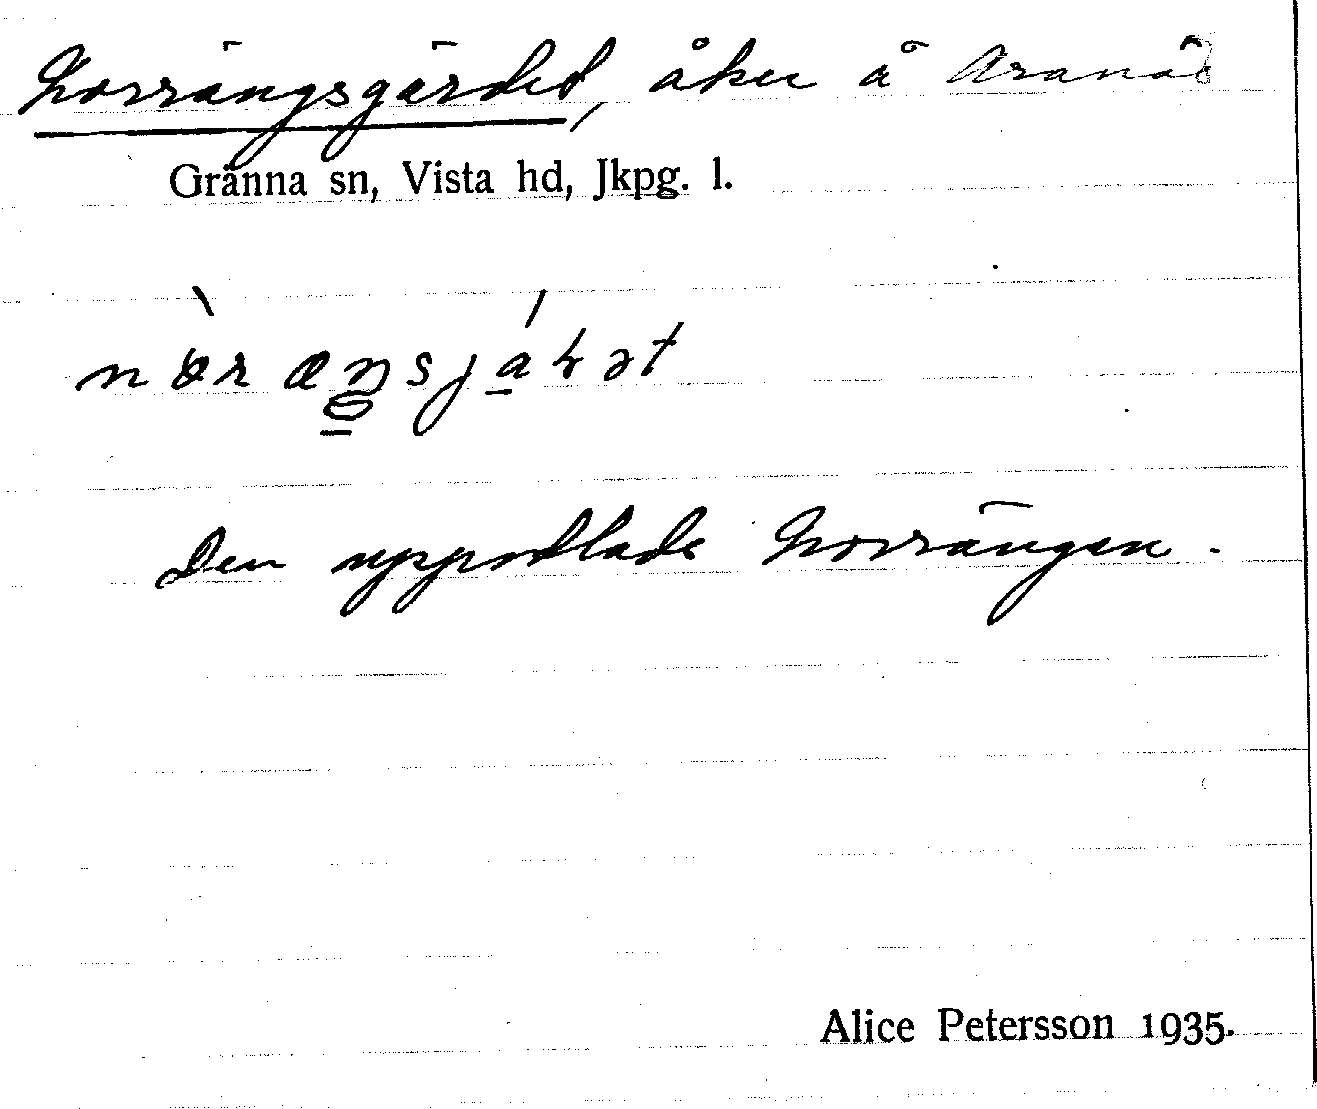 Norrängsgärdet, åker å Aranäs
Gränna sn, Vista hd, Jkpg. l.
Den uppodlade Norrängen.
Alice Petersson 1935.